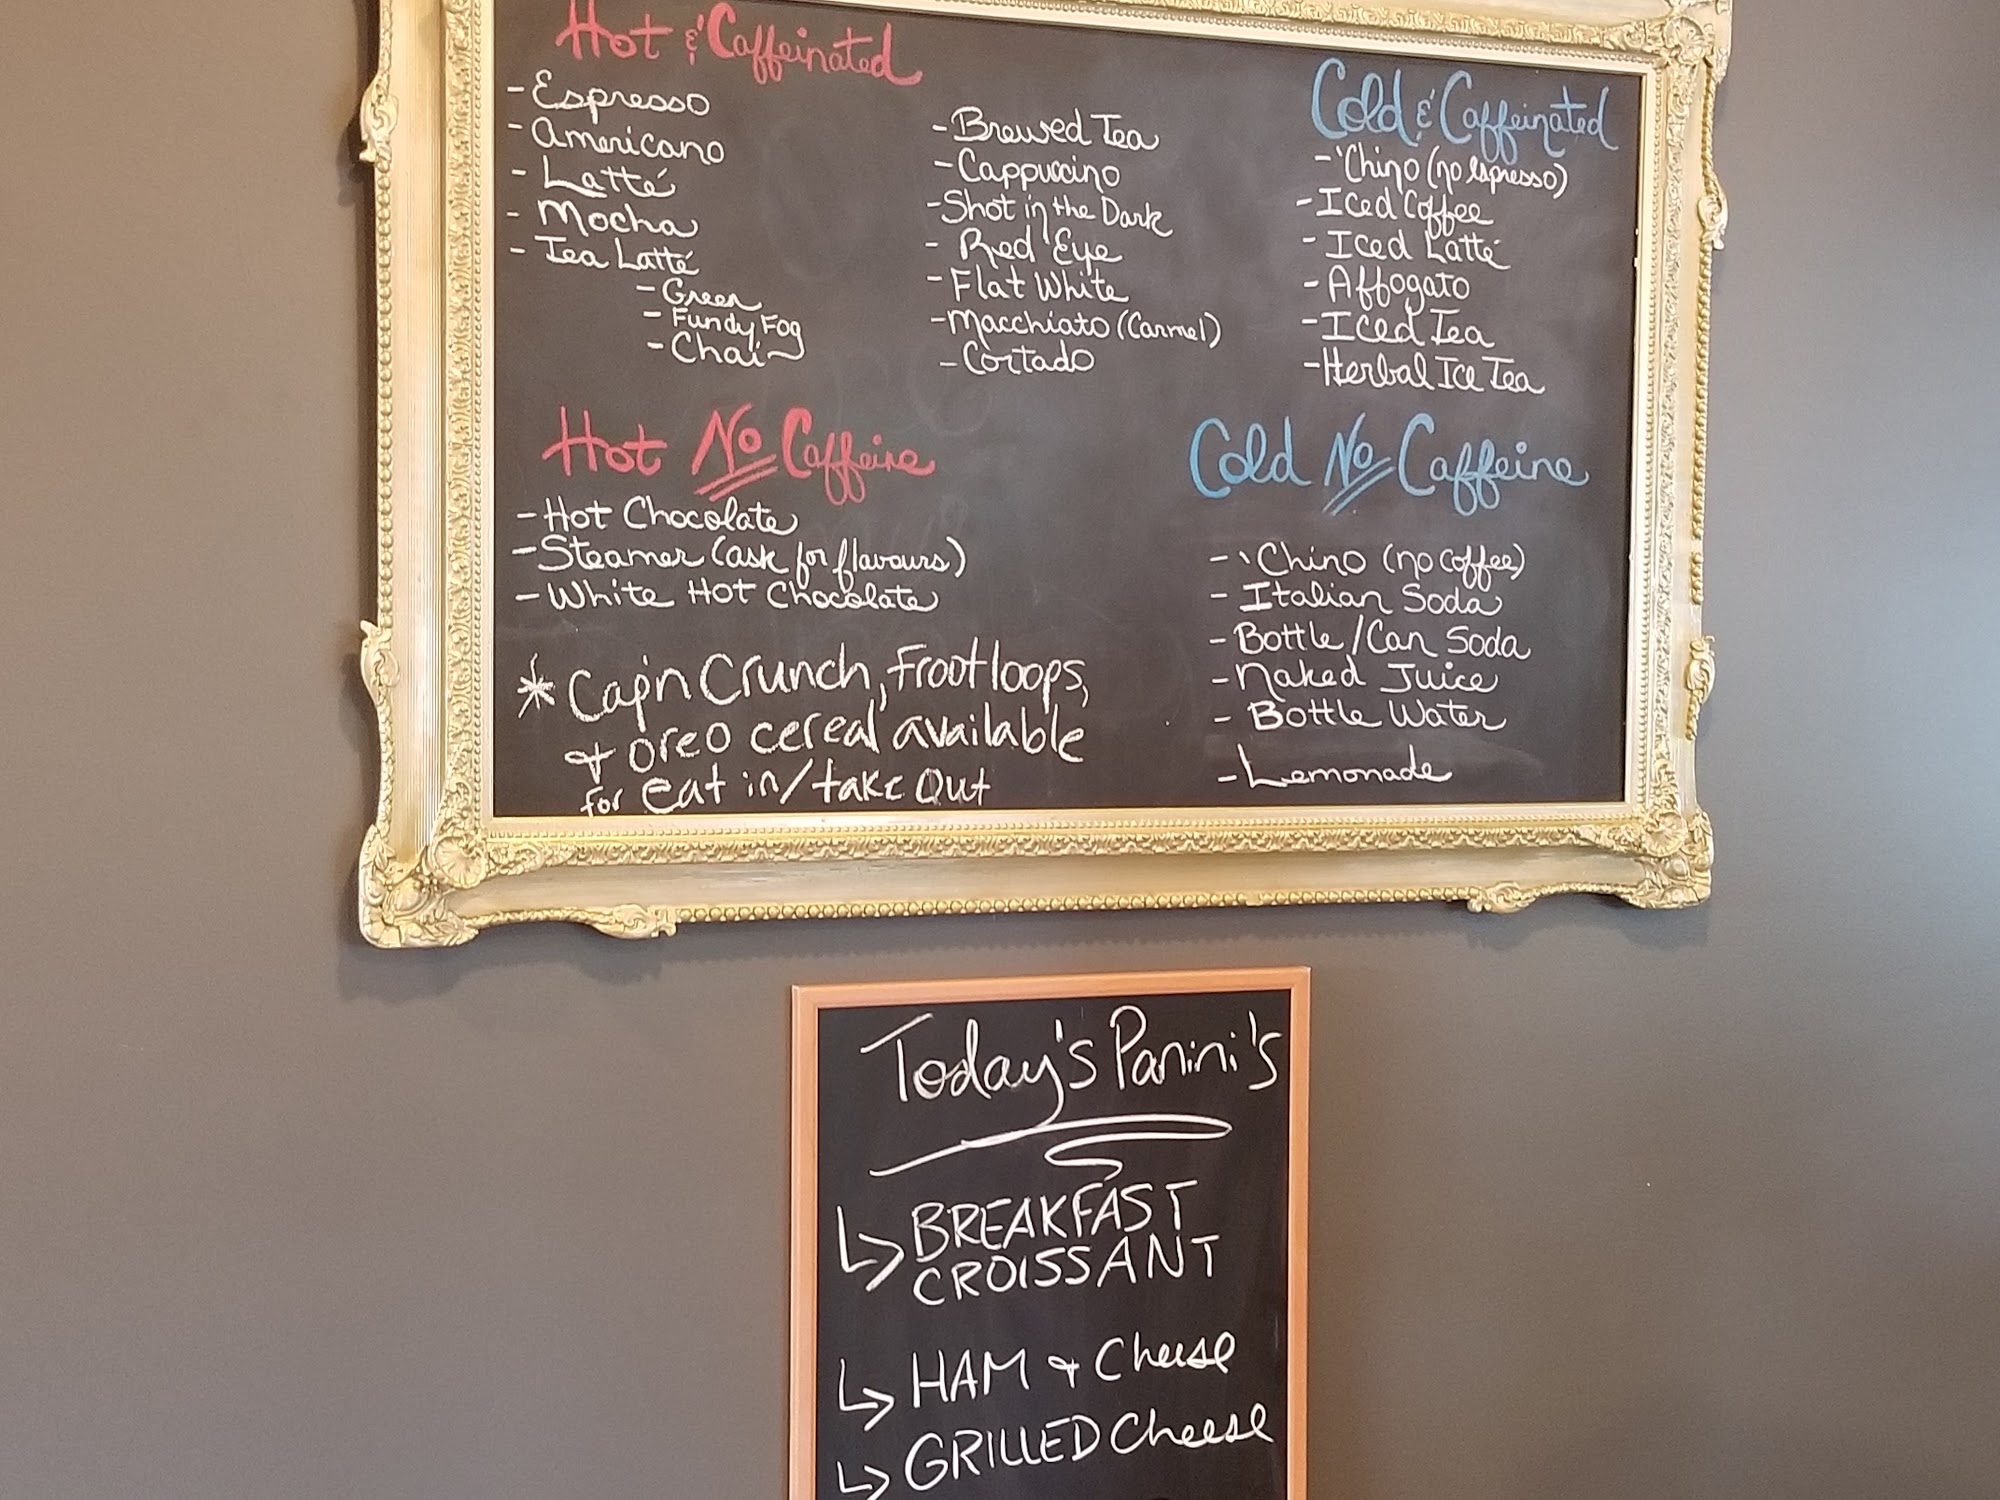 Hot & Caffeinated
- Espresso
- Americano
- Latté
- Mocha
- Tea Latté
- Green
- Fundy Fog
- Chai
- Brewed Tea
- Cappuccino
- Shot in the Dark
- Red Eye
- Flat White
- Macchiato (Carmel)
- Cortado
Cold & Caffeinated
- 'Chino (no espresso)
- Iced Coffee
- Iced Latté
- Affogato
- Iced Tea
- Herbal Ice Tea
Hot No Caffeine
- Hot Chocolate
- Steamer (ask for flavours)
- White Hot Chocolate
* Cap'n Crunch, Froot loops,
& oreo cereal available
for eat in/take out
Cold No Caffeine
- 'Chino (no coffee)
- Italian Soda
- Bottle/Can Soda
- Naked Juice
- Bottle Water
- Lemonade
Today's Panini's
↳ BREAKFAST
CROISSANT
↳ HAM & Cheese
↳ GRILLED Cheese